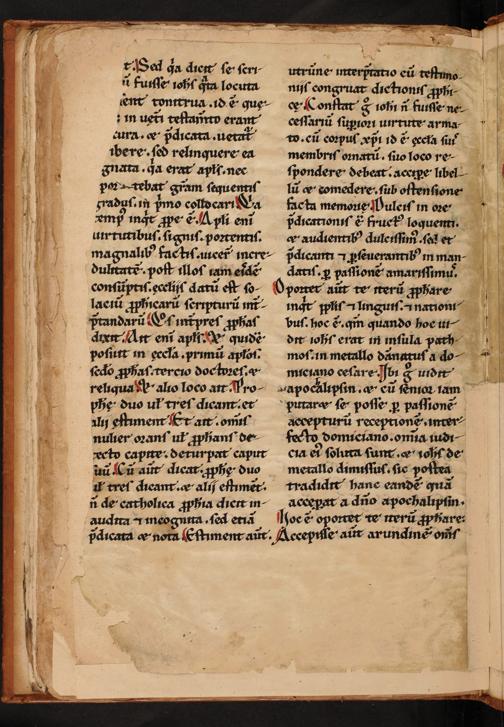 t. Sed q̄a dicit se scri-
n̄ fuisse ioh̄s q̄ta locuta
ent tonitrua. id ē que-
in ueti̅ testam̄to erant
cura. ⁊ p̄dicata. uetat̄
ibere. sed relinquere ea
gnata. q̄a erat apl̄s. nec
por tebat gr̄am sequentis
gradus. in p̄mo collocari. Q̄a
temp̄ inq̄t ꝓpe ē. Apli eni̅
uirtutibus. signis. portentis.
magnalib⁹ factis. uicer̄ incre-
dulitatē. post illos iam eidē
consūptis. eccl̄iis datū est so-
laciū ꝓphicarū scripturū int̄-
p̄tandarū. Q̄s int̄pres ꝓphas
dixit. Ait eni̅ apl̄s. Et quidē
posuit in eccl̄a. primū apl̄os.
sc̄do ꝓphas. tercio doctores. ⁊
reliqua. Et alio loco ait. Pro-
phę duo ul̄ tres dicant. et
alii estiment. Et ait. om̄is
mulier orans ul̄ ꝓphans de-
tecto capite. deturpat caput
suū. Cū aūt dicat. ꝓphę duo
ul̄ tres dicant. ⁊ alii estimēt.
n̄ de catholica ꝓphia dicit in-
audita ⁊ incognita. sed etiā
p̄dicata ⁊ nota. Estiment aūt.
utrūne interp̄tatio cū testimo-
niis congruat dictionis ꝓphi-
cę. Constat g̊ iohi n̄ fuisse ne-
cessariū sup̄iori uirtute arma-
to. cū corpus xp̄i id ē eccl̄a sui̅
membris ornatū. suo loco re-
spondere debeat. accipe libel-
lū ⁊ comedere. sub ostensione
facta memorie. Dulcis in ore
p̄dicationis ē fruct⁹ loquenti.
⁊ audientib⁹ dulcissim̄. sed et
p̄dicanti ⁊ ꝑseuerantib⁹ in man-
datis. ꝑ passionē amarissimū.
Oportet aūt te iterū ꝓphare
inq̄t ppl̄is ⁊ linguis. ⁊ nationi-
bus. hoc ē. qm̄ quando hoc ui-
dit ioh̄s erat in insula path-
mos. in metallo dānatus a do-
miciano cesare. Ibi g̊ uidit
apocalipsin. ⁊ cū senior iam
putaret se posse ꝑ passionē
accepturū receptionē. inter-
fecto domiciano. om̄ia iudi-
cia ei⁹ soluta sunt. ⁊ ioh̄s de
metallo dimissus. sic postea
tradidit hanc eandē quā
acceꝑat a dn̄o apochalipsin.
Hoc ē oportet te iterū ꝓphare.
Accepisse aūt arundinē om̄s